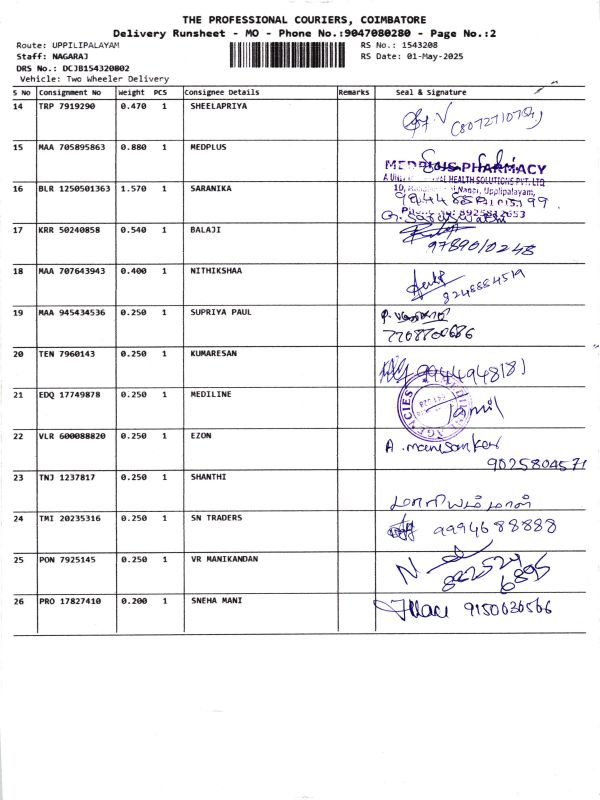 THE PROFESSIONAL COURIERS, COIMBATORE
Delivery Runsheet - MO - Phone No.:9047080280 - Page No.:2
Route: UPPILIPALAYAM RS No.: 1543208
Staff: NAGARAJ RS Date: 01-May-2025
DRS No.: DCJB154320802
Vehicle: Two Wheeler Delivery
S No Consignment No Weight PCS Consignee Details Remarks Seal & Signature
14 TRP 7919290 0.470 1 SHEELAPRIYA
(8072710754)
15 MAA 705895863 0.880 1 MEDPLUS
MEDPLUS PHARMACY
HEALTH SOLUTIONS PVT. LTD
16 BLR 1250501363 1.570 1 SARANIKA
Nagar, Uppilipalayam,
17 KRR 50240858 0.540 1 BALAJI
9789010248
18 MAA 707643943 0.400 1 NITHIKSHAA
8248884519
19 MAA 945434536 0.250 1 SUPRIYA PAUL
7708700686
20 TEN 7960143 0.250 1 KUMARESAN
9944948181
21 EDQ 17749878 0.250 1 MEDILINE
AGENCIES
Jamil
22 VLR 600088820 0.250 1 EZON
A. manisankar
9025804571
23 TNJ 1237817 0.250 1 SHANTHI
மாரியம்மாள்
24 TMI 20235316 0.250 1 SN TRADERS
9994688888
25 PON 7925145 0.250 1 VR MANIKANDAN
892524
6895
26 PRO 17827410 0.200 1 SNEHA MANI
9150636566